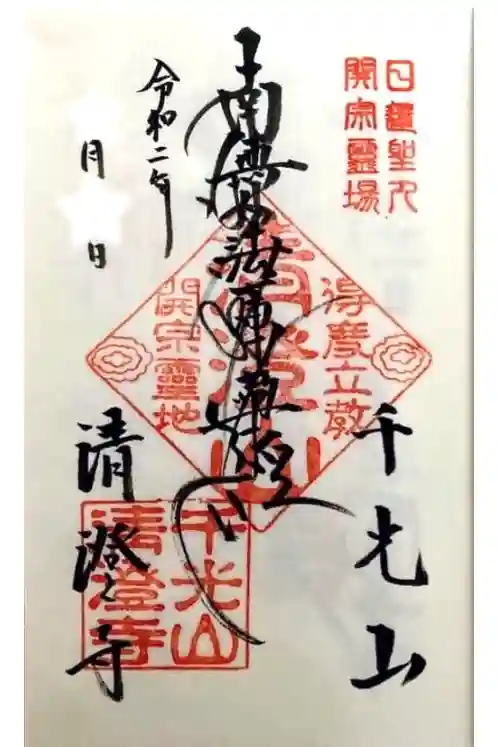 日蓮聖人
開宗霊場
千光山
得度立教
清澄山
開宗靈地
南無妙法蓮華経
令和二年
月
日
清澄寺
千光山
清澄寺